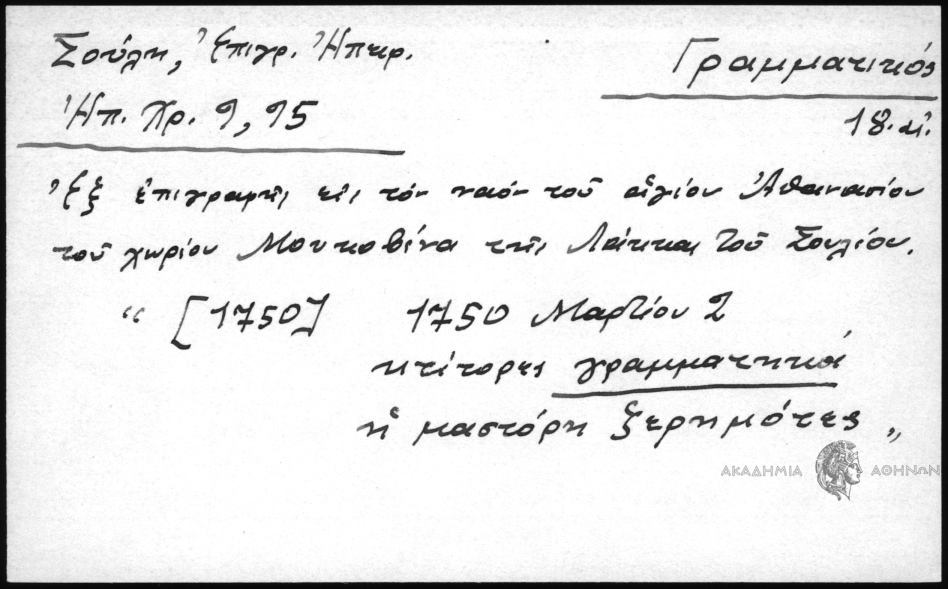 Σούλη, Ἐπιγρ. Ἠπειρ.
Γραμματικός
Ἠπ. Χρ. 9, 95
18. αἰ.
Ἐξ ἐπιγραφῆς εἰς τόν ναόν τοῦ ἁγίου Ἀθανασίου
τοῦ χωρίου Μουκοβίνα τῆς Λάκκας τοῦ Σουλίου.
“ [1750] 1750 Μαρτίου 2
κτίτορες γραμματηκοί
ἡ μαστόρη ξερημότες „
ΑΚΑΔΗΜΙΑ ΑΘΗΝΩΝ